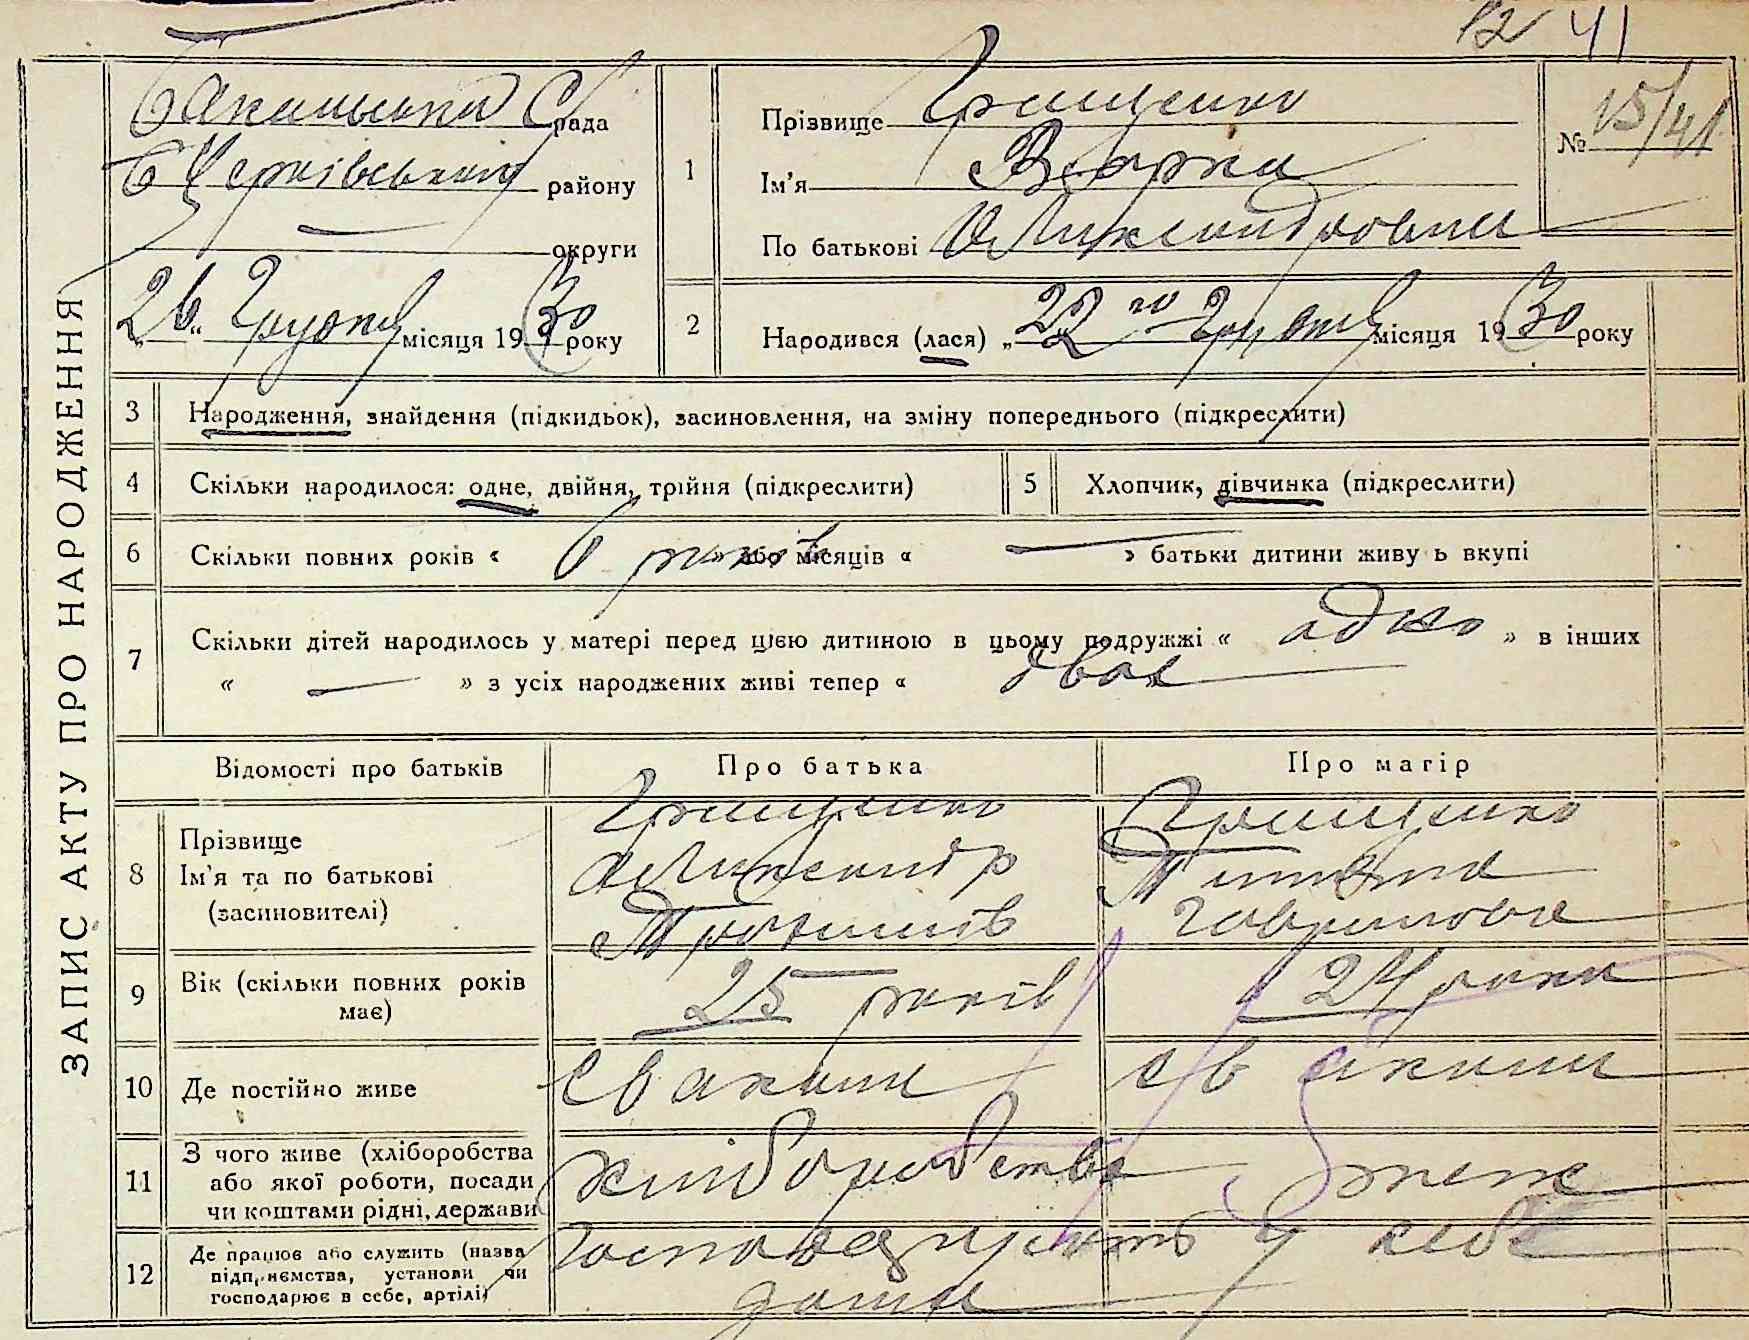 12 41
ЗАПИС АКТУ ПРО НАРОДЖЕННЯ
рада
району
округи
26 Грудня місяця 1930 року
1
Прізвище Грищенко
Ім'я Варка
По батькові Олександровна
№ 15/41
2
Народився (лася) „22 го Грудня місяця 1930 року
3 Народження, знайдення (підкидьок), засиновлення, на зміну попереднього (підкреслити)
4 Скільки народилося: одне, двійня, трійня (підкреслити) 5 Хлопчик, дівчинка (підкреслити)
6 Скільки повних років « 6 років » або місяців « — » батьки дитини живу ь вкупі
7 Скільки дітей народилось у матері перед цією дитиною в цьому подружжі « адно » в інших
« — » з усіх народжених живі тепер « двоє
Відомості про батьків Про батька Про матір
8 Прізвище
Ім'я та по батькові
(засиновителі)
Грищенко
Олександр
Трохимів
Грищенко
Тетяна
Гаврилова
9 Вік (скільки повних років має)
25 років
24 роки
10 Де постійно живе
с Бакаши
с Бакаши
11 З чого живе (хліборобства
або якої роботи, посади
чи коштами рідні, держави
хліборобства
теж
12 Де працює або служить (назва
підприємства, установи чи
господарює в себе, артілі)
господарюють у себе
дома